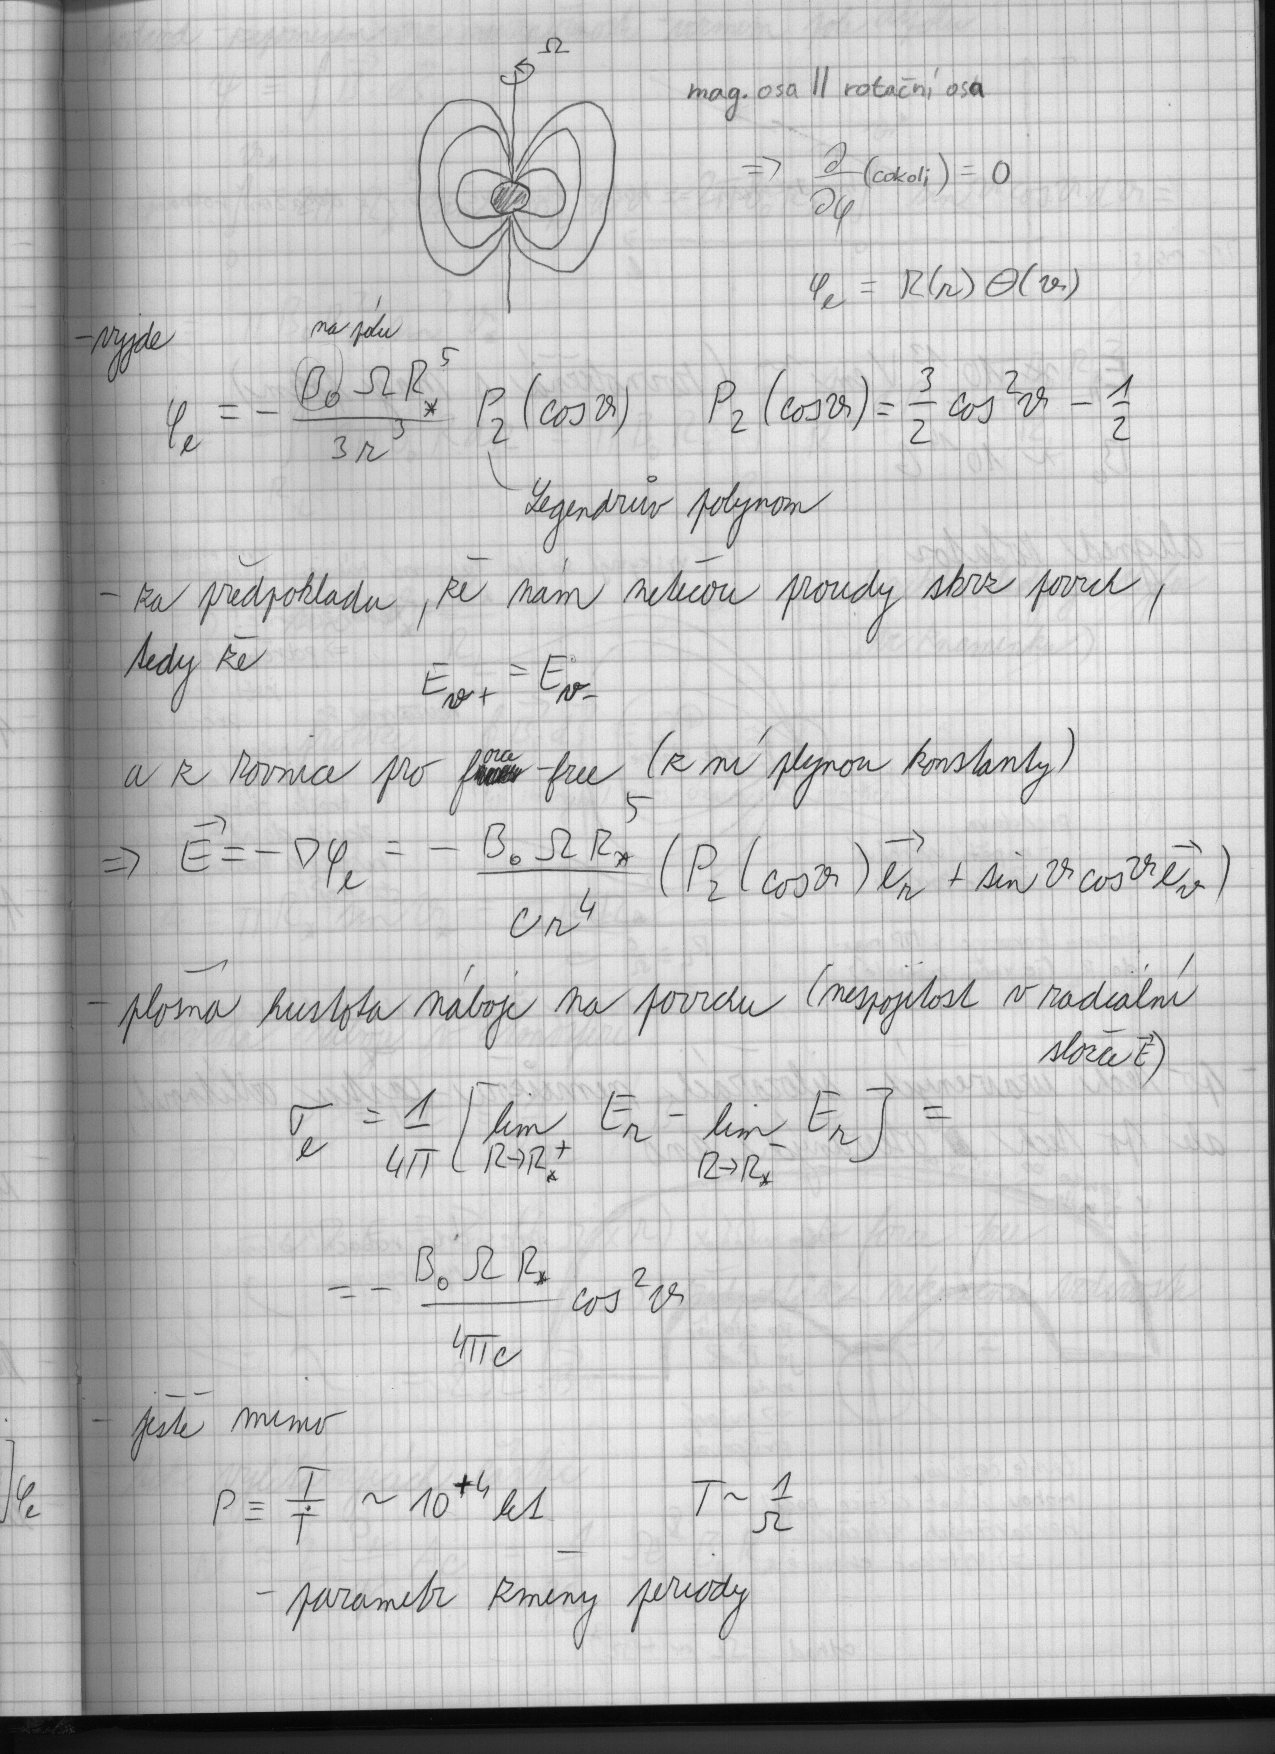 Ω
mag. osa || rotační osa
=> ∂/∂φ (cokoli) = 0
φ_e = R(r) Θ(ϑ)
- vyjde
na pólu
φ_e = - B_0 Ω R_*^5 / 3r^3 P_2 (cosϑ)    P_2 (cosϑ) = 3/2 cos^2 ϑ - 1/2
Legendrův polynom
- za předpokladu, že nám netečou proudy skrz povrch,
tedy že
E_ϑ+ = E_ϑ-
a z rovnice pro force-free (z ní plynou konstanty)
=> \vec{E} = -∇φ_e = - B_0 Ω R_*^5 / c r^4 (P_2 (cosϑ) \vec{e_r} + sin ϑ cos ϑ \vec{e_ϑ})
- plošná hustota náboje na povrchu (nespojitost v radiální
složce \vec{E})
σ_e = 1/4π [ lim_{R→R_*^+} E_r - lim_{R→R_*^-} E_r ] =
= - B_0 Ω R_* / 4πc cos^2 ϑ
- ještě mimo
]φ_e
P ≡ T/Ṫ ~ 10^{+4} let    T ~ 1/Ω
- parametr změny periody